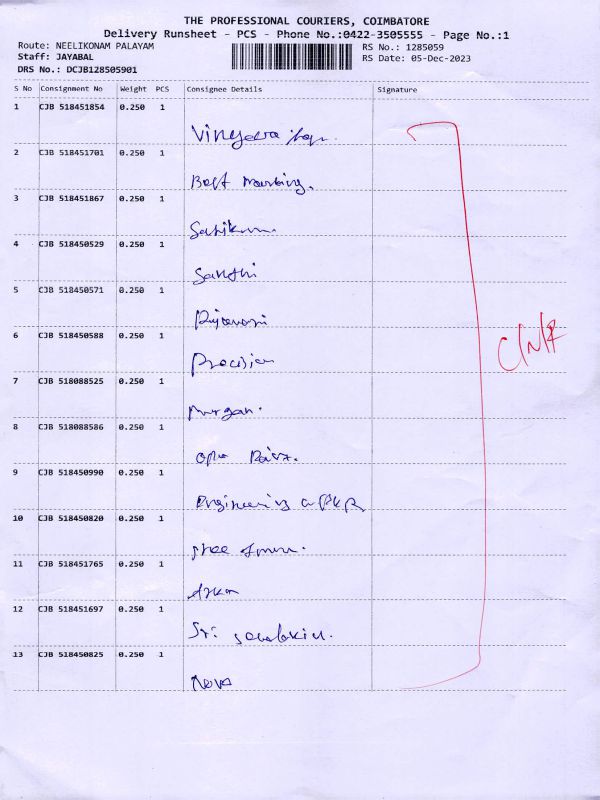 THE PROFESSIONAL COURIERS, COIMBATORE
Delivery Runsheet - PCS - Phone No.:0422-3505555 - Page No.:1
Route: NEELIKONAM PALAYAM
RS No.: 1285059
Staff: JAYABAL
RS Date: 05-Dec-2023
DRS No.: DCJB128505901
S No Consignment No Weight PCS Consignee Details Signature
1 CJB 518451854 0.250 1
2 CJB 518451701 0.250 1
Best
3 CJB 518451867 0.250 1
4 CJB 518450529 0.250 1
Santhi
5 CJB 518450571 0.250 1
6 CJB 518450588 0.250 1
Precision
7 CJB 518088525 0.250 1
Murgan.
8 CJB 518088586 0.250 1
9 CJB 518450990 0.250 1
Engineering
10 CJB 518450820 0.250 1
Shree
11 CJB 518451765 0.250 1
12 CJB 518451697 0.250 1
Sri
13 CJB 518450825 0.250 1
Nova